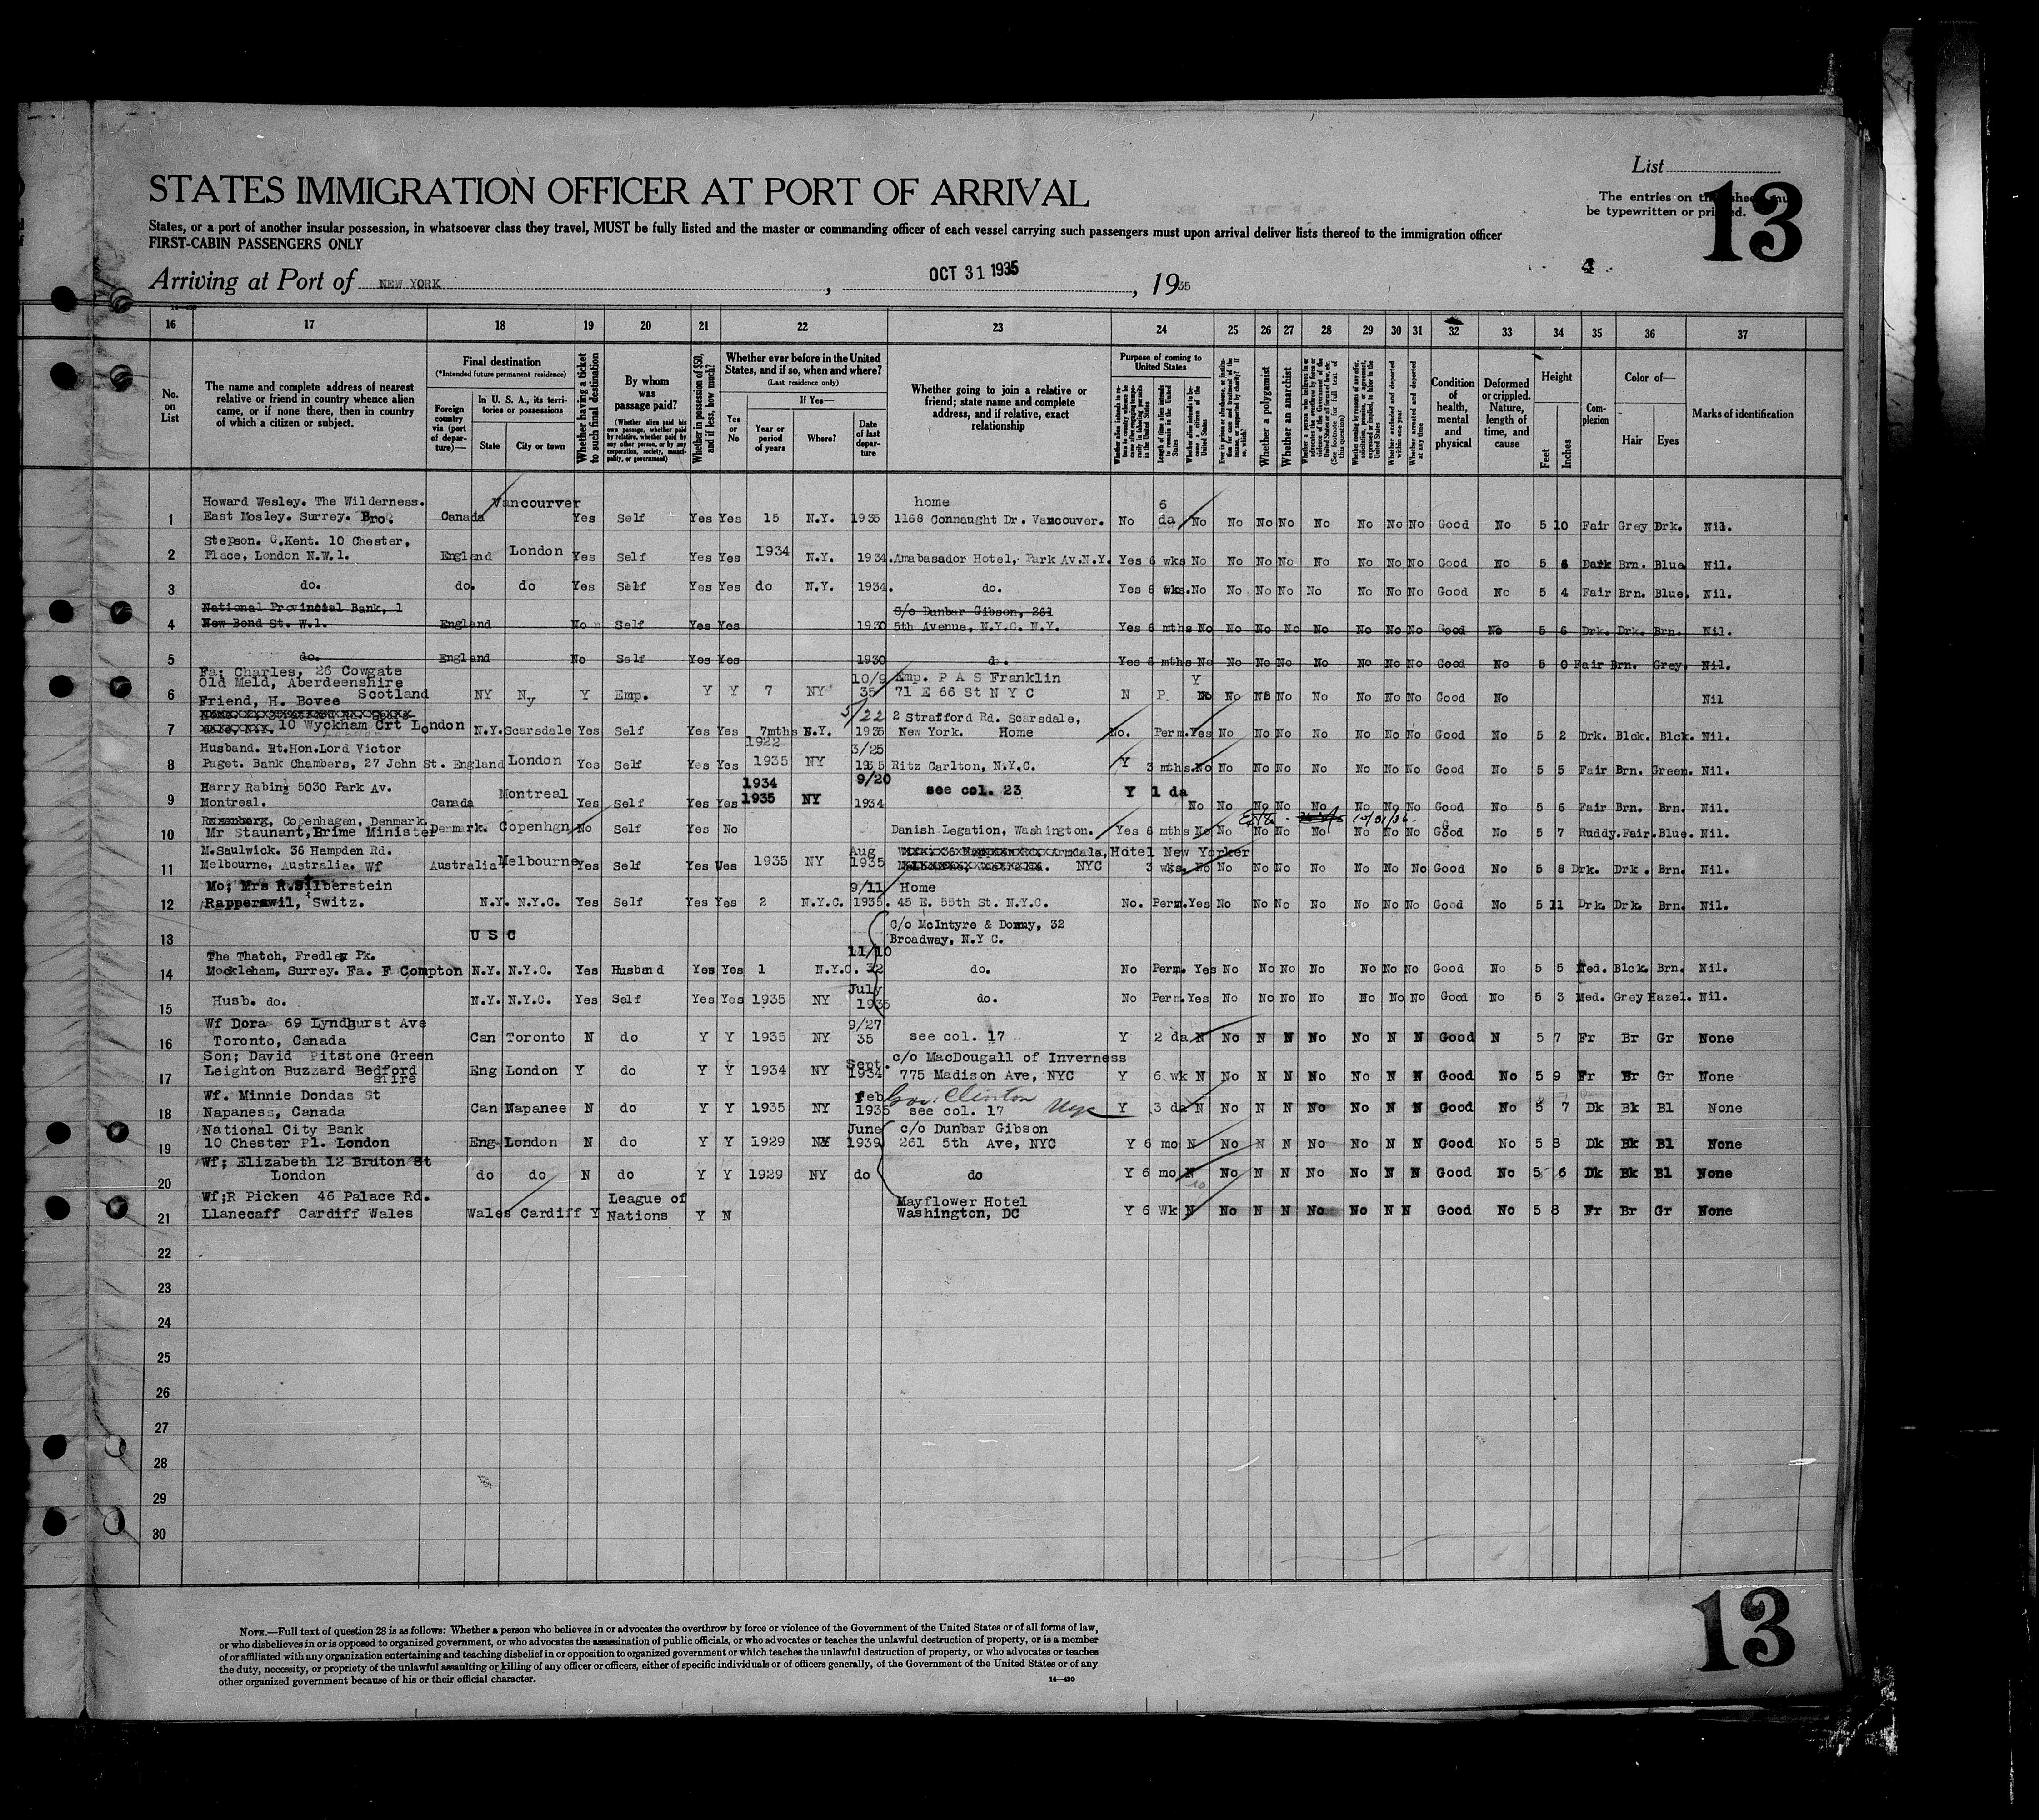 List
13
The entries on this sheet must
be typewritten or printed.
STATES IMMIGRATION OFFICER AT PORT OF ARRIVAL
States, or a port of another insular possession, in whatsoever class they travel, MUST be fully listed and the master or commanding officer of each vessel carrying such passengers must upon arrival deliver lists thereof to the immigration officer
FIRST-CABIN PASSENGERS ONLY
Arriving at Port of NEW YORK, OCT 31 1935, 1935
4
16 17 18 19 20 21 22 23 24 25 26 27 28 29 30 31 32 33 34 35 36 37
No. on List
The name and complete address of nearest relative or friend in country whence alien came, or if none there, then in country of which a citizen or subject.
Final destination
(*Intended future permanent residence)
Foreign country via (port of departure)—
In U. S. A., its territories or possessions
State
City or town
Whether having a ticket to such final destination
By whom was passage paid?
(Whether alien paid his own passage, whether paid by relative, whether paid by any other person, or by any corporation, society, municipality, or government)
Whether in possession of $50, and if less, how much?
Whether ever before in the United States, and if so, when and where?
(Last residence only)
Yes or No
If Yes—
Year or period of years
Where?
Date of last departure
Whether going to join a relative or friend; state name and complete address, and if relative, exact relationship
Purpose of coming to United States
Length of time alien intends to remain in the United States
Whether alien intends to become a citizen of the United States
Whether a polygamist
Whether an anarchist
(See footnote for full text of this question)
Whether excluded and deported within one year
Whether arrested and deported at any time
Condition of health, mental and physical
Deformed or crippled. Nature, length of time, and cause
Height
Feet
Inches
Complexion
Color of—
Hair
Eyes
Marks of identification
Howard Wesley. The Wilderness. Vancourver home 6
1 East Mosley. Surrey. Bro. Canada Yes Self Yes Yes 15 N.Y. 1935 1168 Connaught Dr. Vancouver. No da No No No No No No No No Good No 5 10 Fair Grey Drk. Nil.
Stepson. C.Kent. 10 Chester,
2 Place, London N.W.1. England London Yes Self Yes Yes 1934 N.Y. 1934. Amabasador Hotel, Park Av.N.Y. Yes 6 wks No No No No No No No No Good No 5 6 Dark Brn. Blue Nil.
3 do. do. do Yes Self Yes Yes do N.Y. 1934. do. Yes 6 wks. No No No No No No No No Good No 5 4 Fair Brn. Blue. Nil.
National Provincial Bank, 1 C/o Dunbar Gibson, 261
4 New Bond St. W.1. England No Self Yes Yes 1930 5th Avenue, N.Y.C. N.Y. Yes 6 mths No No No No No No No No Good No 5 6 Drk. Drk. Brn. Nil.
5 do. England No Self Yes Yes 1930 d. Yes 6 mths No No No No No No No No Good No 5 0 Fair Brn. Grey. Nil.
Fa; Charles, 26 Cowgate 10/9 Emp. P A S Franklin Y
Old Meld, Aberdeenshire
6 Scotland NY Ny Y Emp. Y Y 7 NY 35 71 E 66 St N Y C N P. No No No No No No No No Good No Nil
Friend, H. Bovee
5/22 2 Strafford Rd. Scarsdale,
7 10 Wyckham Crt London N.Y. Scarsdale Yes Self Yes Yes 7mths N.Y. 1935 New York. Home No. Perm. Yes No No No No No No No Good No 5 2 Drk. Blck. Blck. Nil.
Husband. Rt.Hon.Lord Victor 1922 3/25
8 Paget. Bank Chambers, 27 John St. England London Yes Self Yes Yes 1935 NY 1935 Ritz Carlton, N.Y.C. Y 3 mths. No No No No No No No No Good No 5 5 Fair Brn. Green. Nil.
Harry Rabing 5030 Park Av. 1934 9/20
9 Montreal. Canada Montreal Yes Self Yes Yes 1935 NY 1934 see col. 23 Y 1 da No No No No No No No No Good No 5 6 Fair Brn. Brn. Nil.
Rosenborg, Copenhagen, Denmark. 10/31/36
10 Mr Staunant, Brime Minister Denmark. Copenhgn No Self Yes No Danish Legation, Washington. Yes 6 mths No No No No No No No No Good No 5 7 Ruddy. Fair. Blue. Nil.
M.Saulwick. 36 Hampden Rd. Aug Hotel New Yorker
11 Melbourne, Australia. Wf Australia Melbourne Yes Self Yes Yes 1935 NY 1935 NYC 3 wks. No No No No No No No No Good No 5 8 Drk. Drk. Brn. Nil.
Mo; Mrs R.Silberstein 9/11 Home
12 Rapperswil, Switz. N.Y. N.Y.C. Yes Self Yes Yes 2 N.Y.C. 1935. 45 E. 55th St. N.Y.C. No. Perm. Yes No No No No No No No Good No 5 11 Drk. Drk. Brn. Nil.
C/o McIntyre & Dommy, 32
13 U S C Broadway, N.Y C.
The Thatch, Fredley Pk. 11/10
14 Mockleham, Surrey. Fa. F Compton N.Y. N.Y.C. Yes Husband Yes Yes 1 N.Y.C. 32 do. No Perm. Yes No No No No No No No Good No 5 5 Med. Blck. Brn. Nil.
July
15 Husb. do. N.Y. N.Y.C. Yes Self Yes Yes 1935 NY 1935 do. No Perm. Yes No No No No No No No Good No 5 3 Med. Grey Hazel. Nil.
Wf Dora 69 Lyndhurst Ave 9/27
16 Toronto, Canada Can Toronto N do Y Y 1935 NY 35 see col. 17 Y 2 da N No N N No No N N Good N 5 7 Fr Br Gr None
Son; David Pitstone Green Sept. c/o MacDougall of Inverness
17 Leighton Buzzard Bedford shire Eng London Y do Y Y 1934 NY 1934 775 Madison Ave, NYC Y 6 wk N No N N No No N N Good No 5 9 Fr Br Gr None
Wf. Minnie Dondas St Feb Gov. Clinton NYC
18 Napaness, Canada Can Napanee N do Y Y 1935 NY 1935 see col. 17 Y 3 da N No N N No No N N Good No 5 7 Dk Bk Bl None
National City Bank June c/o Dunbar Gibson
19 10 Chester Pl. London Eng London N do Y Y 1929 NY 1939 261 5th Ave, NYC Y 6 mo N No N N No No N N Good No 5 8 Dk Bk Bl None
Wf; Elizabeth 12 Bruton St
20 London do do N do Y Y 1929 NY do do Y 6 mo N No N N No No N N Good No 5 6 Dk Bk Bl None
Wf;R Picken 46 Palace Rd. League of Mayflower Hotel
21 Llanecaff Cardiff Wales Wales Cardiff Y Nations Y N Washington, DC Y 6 Wk N No N N No No N N Good No 5 8 Fr Br Gr None
22
23
24
25
26
27
28
29
30
NOTE.—Full text of question 28 is as follows: Whether a person who believes in or advocates the overthrow by force or violence of the Government of the United States or of all forms of law,
or who disbelieves in or is opposed to organized government, or who advocates the assassination of public officials, or who advocates or teaches the unlawful destruction of property, or is a member
of or affiliated with any organization entertaining and teaching disbelief in or opposition to organized government or which teaches the unlawful destruction of property, or who advocates or teaches
the duty, necessity, or propriety of the unlawful assaulting or killing of any officer or officers, either of specific individuals or of officers generally, of the Government of the United States or of any
other organized government because of his or their official character.
14—430
13